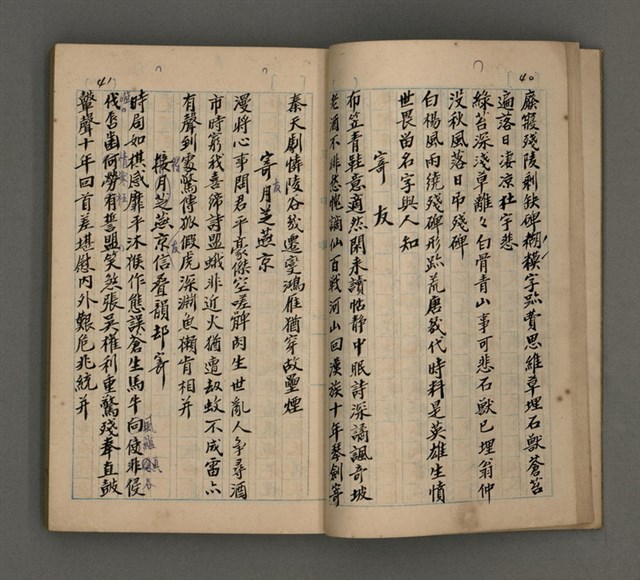 40
廢殿殘陵剩缺碑糊模字跡費思維草埋石獸蒼苔
遍落日凄凉杜宇悲
綠苔深淺草離々白骨青山事可悲石獸已埋翁仲
没秋風落日吊殘碑
白楊風雨繞殘碑形跡荒唐幾代時料是英雄生憤
世畏留名字與人知
寄友
布笠青鞋意適然閑来讀帖静中眠詩深譎諷奇坡
老酒不非愁愧謫仙百戰河山回漢族十年琴劍寄
41
秦天劇憐陵谷幾遷變鴻雁猶穿故壘煙
寄月芝燕京
友
漫將心事問君平豪傑空嗟髀肉生世亂人争尋酒
市時窮我喜締詩盟蛾非近火猶遭劫蚊不成雷亦
有聲到處驚傳狐假虎深淵魚獺肯相并
接月芝燕京信叠韻却寄
友
時局如棋感靡平沐猴作態誤蒼生馬牛向使非侵
伐齒勞有誓盟笑然張吳權利重驚殘奉直鼓
鼙聲十年回首差堪慰内外艱危兆統并